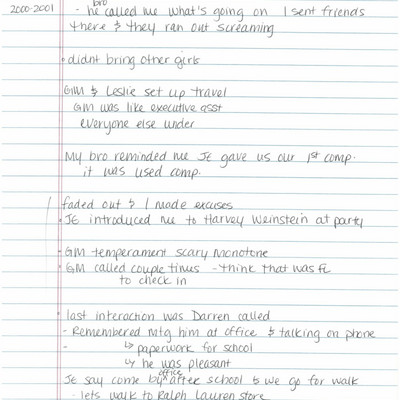 bro
2000-2001 - he called me what's going on I sent friends
there & they ran out screaming
• didnt bring other girls
GM & Leslie set up travel
GM was like executive asst
everyone else under
My bro reminded me JE gave us our 1st comp.
it was used comp.
faded out & I made excuses
• JE introduced me to Harvey Weinstein at party
- GM temperament scary monotone
• GM called couple times - think that was FL
to check in
• last interaction was Darren called
- Remembered mtg him at office & talking on phone
- ↳ paperwork for school
↳ he was pleasant
office
JE say come by after school & we go for walk
- lets walk to Ralph Lauren store